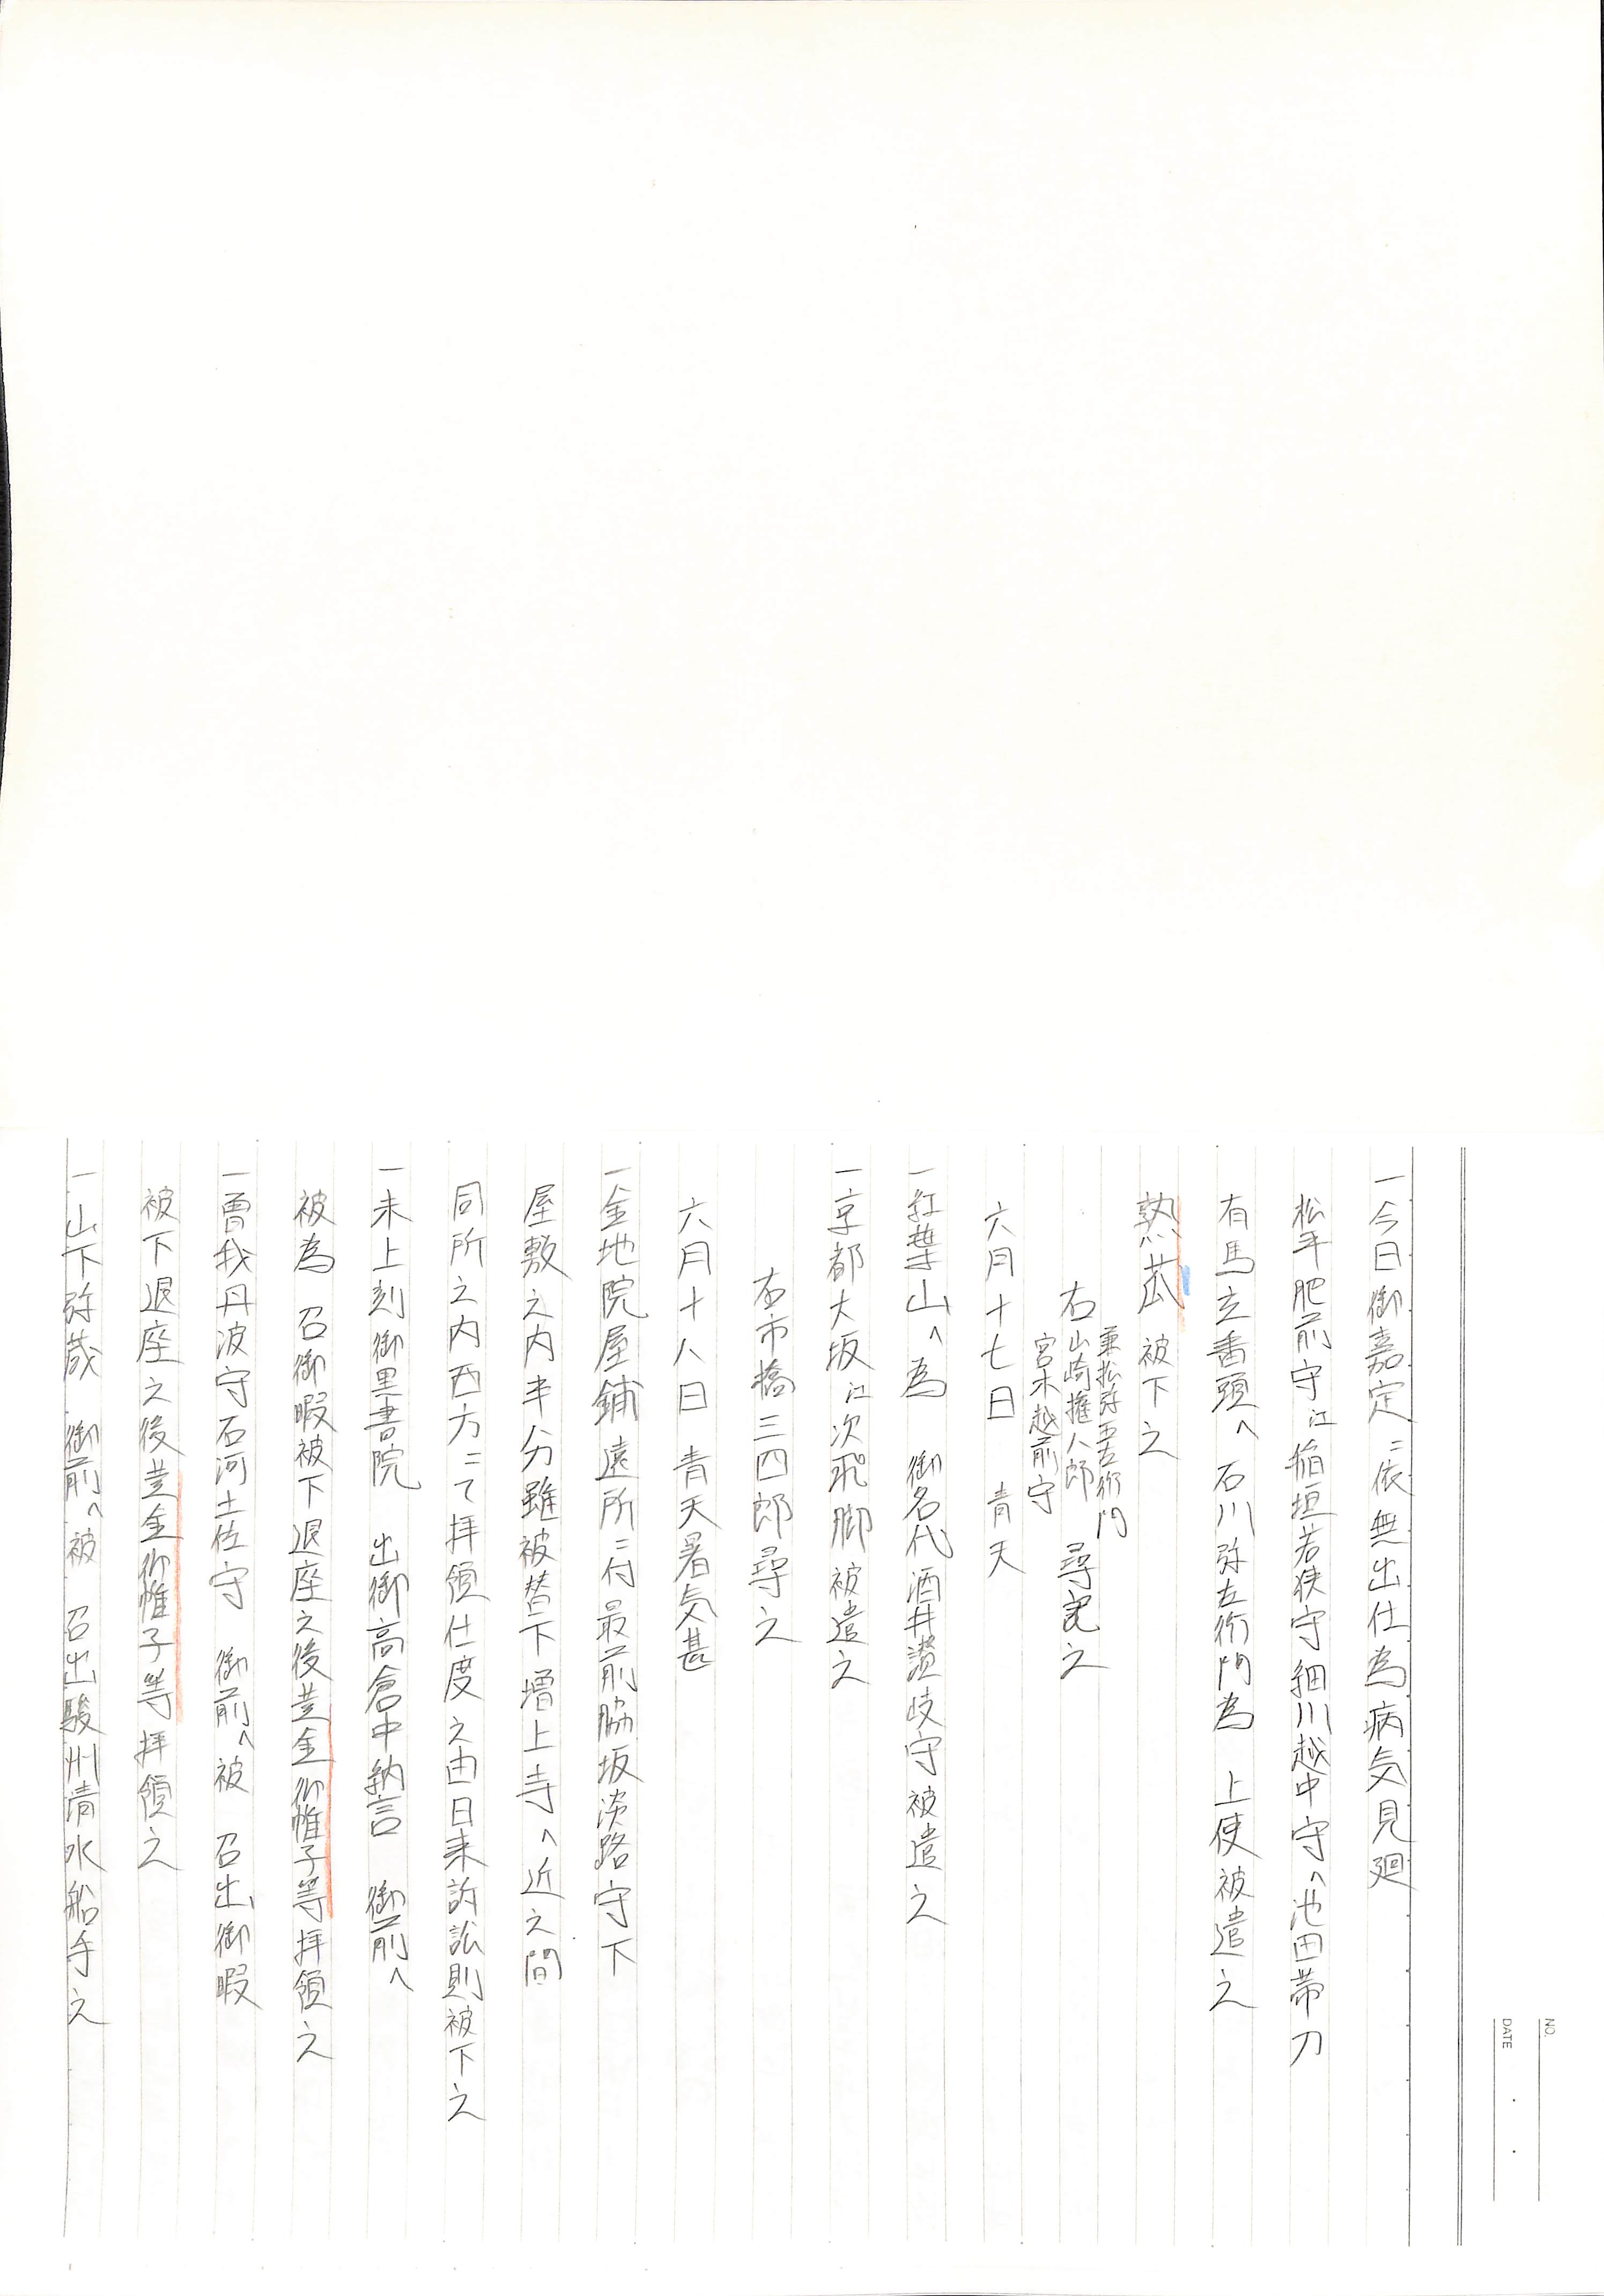 一今日御嘉定ニ依無出仕為病気見廻
松平肥前守江稲垣若狭守細川越中守へ池田帯刀
有馬玄蕃頭へ 石川弥左衛門為 上使被遣之
熟瓜 被下之
兼松弥五左衛門
右山崎権八郎 尋究之
宮木越前守
六月十七日 青天
一紅葉山へ為 御名代酒井讃岐守被遣之
一京都大坂江次飛脚被遣之
右市橋三四郎尋之
六月十八日 青天暑気甚
一金地院屋鋪遠所ニ付最前脇坂淡路守下
屋敷之内半分雖被替下増上寺へ近之間
同所之内西方ニて拝領仕度之由日来訴訟則被下之
一未上刻御黒書院 出御高倉中納言 御前へ
被為 召御暇被下退座之後黄金御帷子等拝領之
一曽我丹波守石河土佐守 御前へ被 召出御暇
被下退座之後黄金御帷子等拝領之
一山下弥蔵 御前へ被 召出駿州清水船手之
NO.
DATE